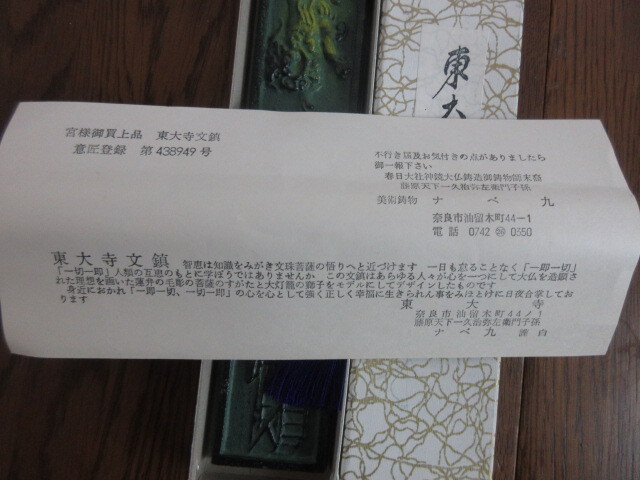 東大
宮様御買上品 東大寺文鎮
意匠登録 第438949号
不行き届及お気付きの点がありましたら
御一報下さい
春日大社神鏡大仏鋳造御鋳物師末裔
藤原天下一久治弥左衛門子孫
美術鋳物 ナベ九
奈良市油留木町44−1
電話 0742 0550
東大寺文鎮 智恵は知識をみがき文珠菩薩の悟りへと近づけます 一日も忘ることなく「一即一切」
「一切一即」人類の互恵のもとに学ぼうではありませんか この文鎮はあらゆる人々が心を一つにして大仏を造顕さ
れた理想を画いた蓮弁の毛彫の菩薩のすがたと大灯籠の獅子をモデルにしてデザインしたものです
身近におかれ「一即一切、一切一即」の心を心として強く正しく幸福に生きられん事をみほとけに日夜合掌してお
ります
東大寺
奈良市油留木町44ノ1
藤原天下一久治弥左衛門子孫
ナベ九 謹白